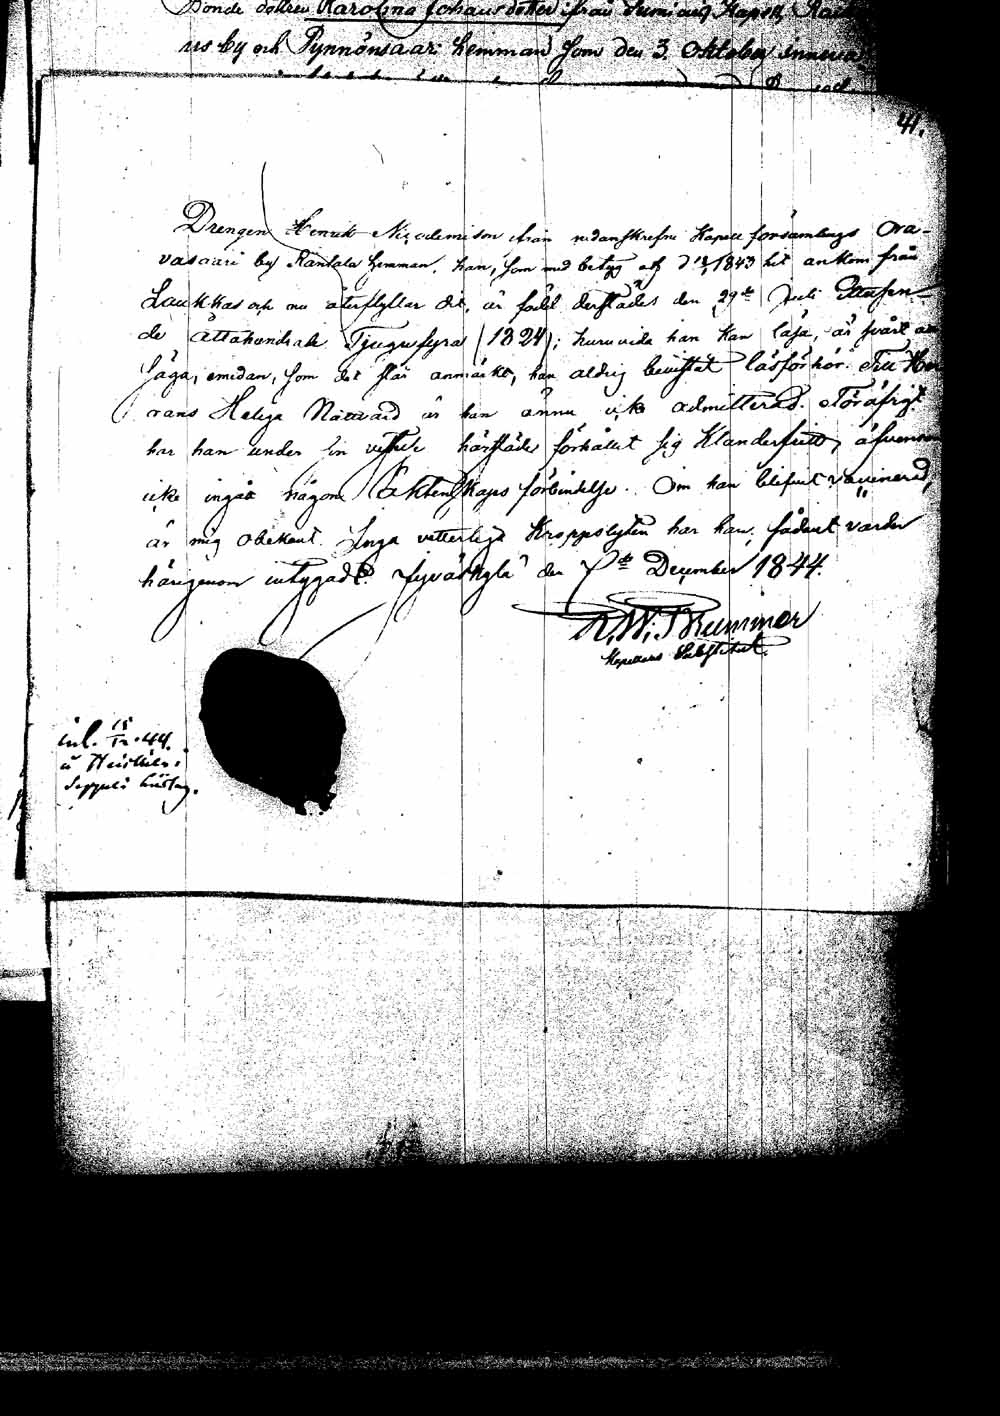 Bonde dottren Karolina Johansdotter ifrån Sumiais Kapell,
us by och Pynnönsaari hemman som den 3. Oktober innewa
41.
Drengen Henrik Nicodemison ifrån nedanskrefne Kapell församlings Ora-
vasaari by Rantala hemman, han, som med betyg af d 1843 hit ankom från
Laukkas och nu återflyttar dit, är född derstädes den 29de Juli Ettusen-
de åttahundrade Tjugufyra (1824); huruvida han kan läsa, är svårt att
säga, emedan, som det står anmärkt, han aldrig bevistat läsförhör. Till Her
rans Heliga Nattvard är han ännu icke admitterad. Föröfrigt
har han under sin vistelse härstädes förhållit sig Klanderfritt, äfvensom
icke ingått någon Äktenskaps förbindelse. Om han blifvit vaccinerad,
är mig obekant. Inga vetterliga Kroppslyten har han, sådant varder
härigenom intygadt. Jyväskylä den 7de December 1844.
K. W. Brummer
Kapellans Substitut.
inl. 15/12 44.